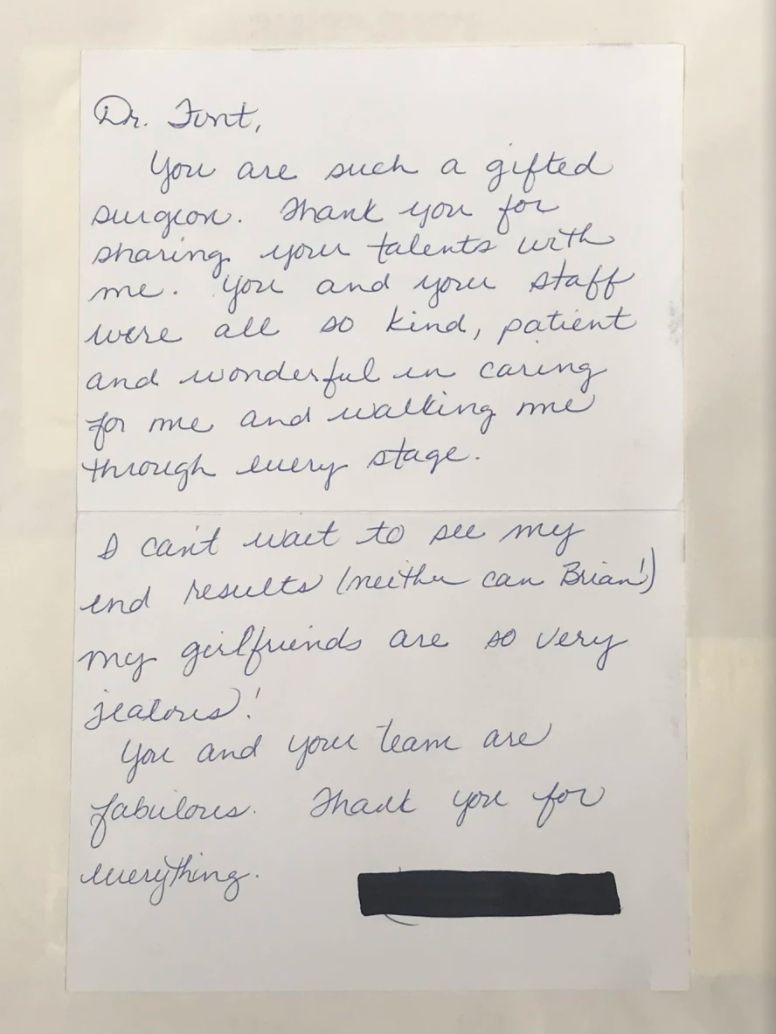 Dr. Font,
You are such a gifted
surgeon. Thank you for
sharing your talents with
me. You and your staff
were all so kind, patient
and wonderful in caring
for me and walking me
through every stage.
I can't wait to see my
end results (neither can Brian!)
my girlfriends are so very
jealous!
You and your team are
fabulous. Thank you for
everything.